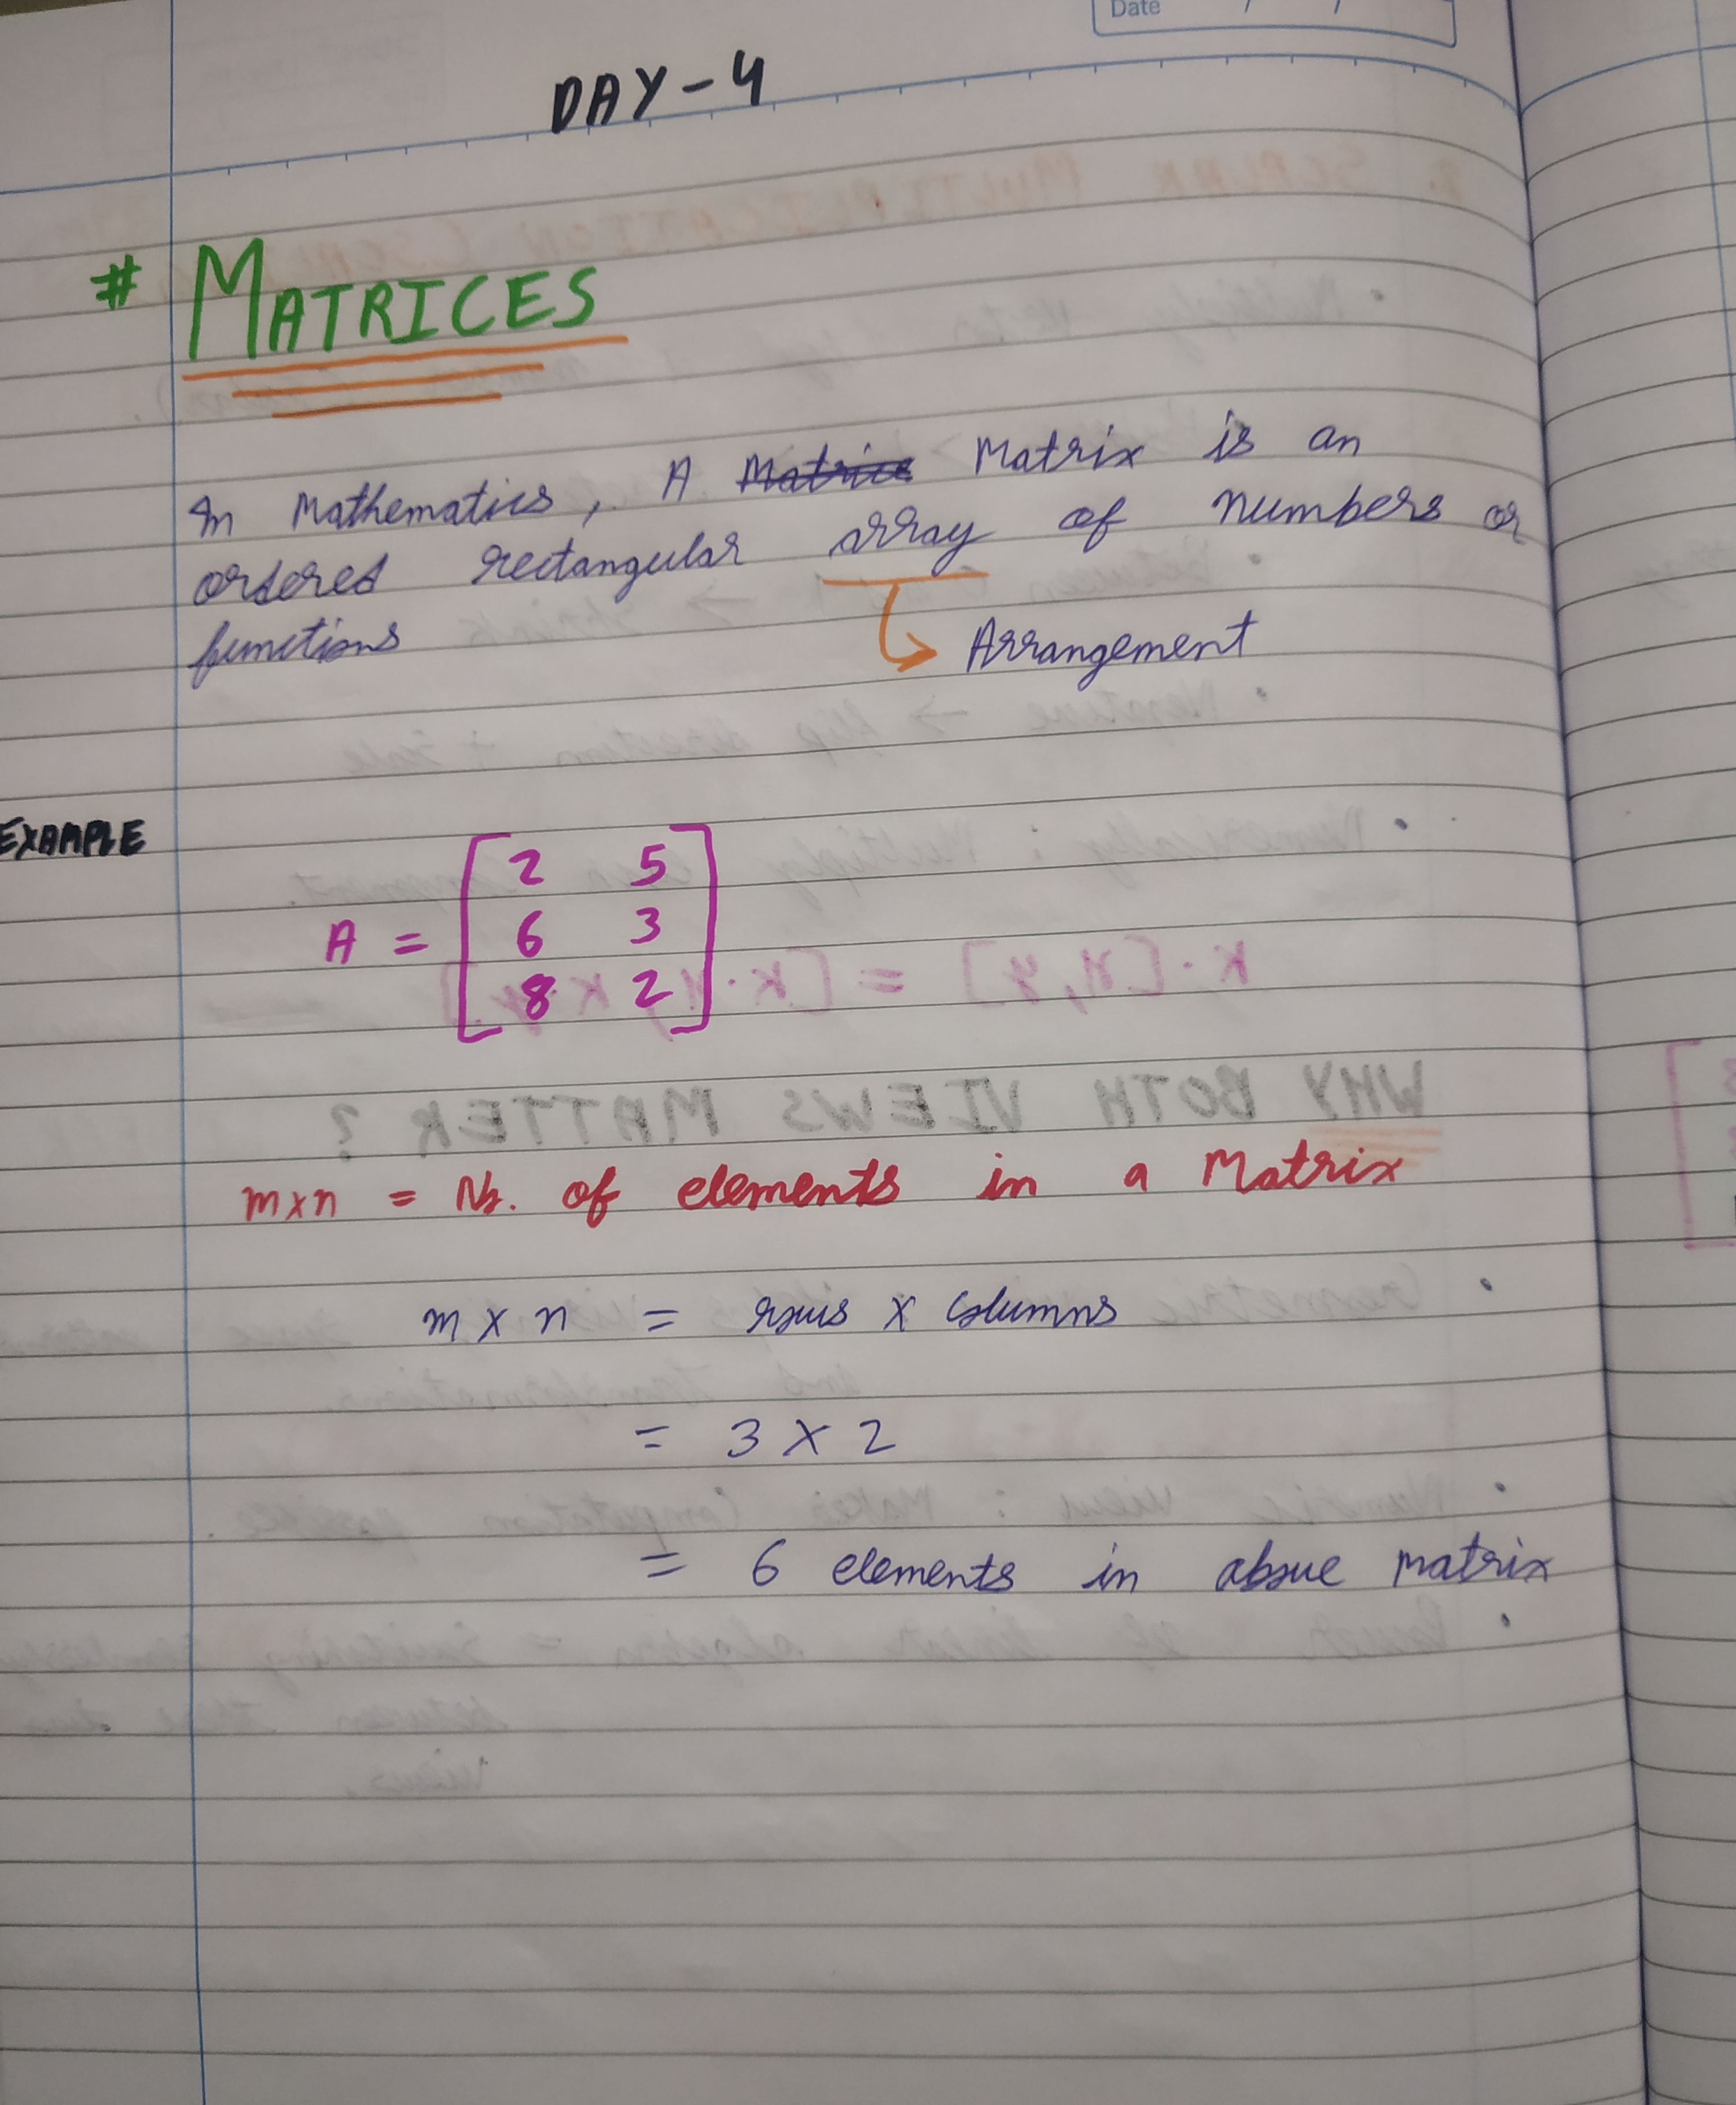 Date / /
DAY-4
# MATRICES
In Mathematics, A Matrice Matrix is an
ordered rectangular array of numbers or
functions
Arrangement
EXAMPLE
A = [2 5
6 3
8 2]
m×n = No. of elements in a Matrix
m × n = rows × Columns
= 3 × 2
= 6 elements in above matrix